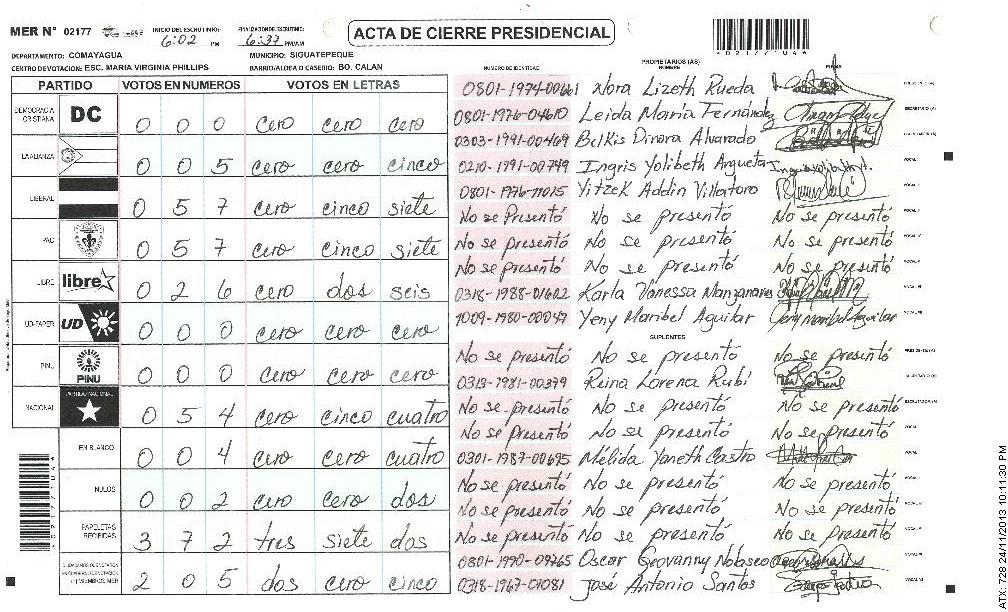 MER N° 02177
INICIO DEL ESCRUTINIO: 6:02 PM
FINALIZACION DE ESCRUTINIO: 6:37 PM/AM
ACTA DE CIERRE PRESIDENCIAL
021771044
DEPARTAMENTO: COMAYAGUA
MUNICIPIO: SIGUATEPEQUE
CENTRO DE VOTACION: ESC. MARIA VIRGINIA PHILLIPS
BARRIO/ALDEA O CASERIO: BO. CALAN
PARTIDO VOTOS EN NUMEROS VOTOS EN LETRAS
DEMOCRACIA CRISTIANA DC 0 0 0 cero cero cero
LA ALIANZA 0 0 5 cero cero cinco
LIBERAL 0 5 7 cero cinco siete
PAC 0 5 7 cero cinco siete
LIBRE libre 0 2 6 cero dos seis
UD-FAPER UD 0 0 0 cero cero cero
PINU PINU 0 0 0 cero cero cero
NACIONAL PARTIDO NACIONAL 0 5 4 cero cinco cuatro
EN BLANCO 0 0 4 cero cero cuatro
NULOS 0 0 2 cero cero dos
PAPELETAS RECIBIDAS 3 7 2 tres siete dos
2 0 5 dos cero cinco
NUMERO DE IDENTIDAD PROPIETARIOS (AS) NOMBRE FIRMA
0801-1974-00661 Nora Lizeth Rueda
0801-1976-04610 Leida María Fernández
0303-1991-00469 Belkis Dinora Alvarado
0210-1991-00749 Ingris Yolibeth Argueta
0801-1976-11015 Yitzek Addin Villatoro
No se Presentó No se presentó No se presentó
No se presentó No se presentó No se presentó
No se presentó No se presentó No se presentó
0318-1988-01602 Karla Vanessa Manzanares
1009-1980-00047 Yeny Maribel Aguilar Yeny Maribel Aguilar
SUPLENTES
No se presentó No se presentó No se presentó
0313-1981-00379 Reina Lorena Rubí
No se presentó No se presentó No se presentó
No se presentó No se presentó No se presentó
0301-1987-00695 Mélida Yaneth Castro
No se presentó No se presentó No se presentó
No se presentó No se presentó No se presentó
No se presentó No se presentó No se presentó
0801-1990-09765 Oscar Geovanny Nolasco
0318-1967-01081 José Antonio Santos
ATX-728 24/11/2013 10:11:30 PM